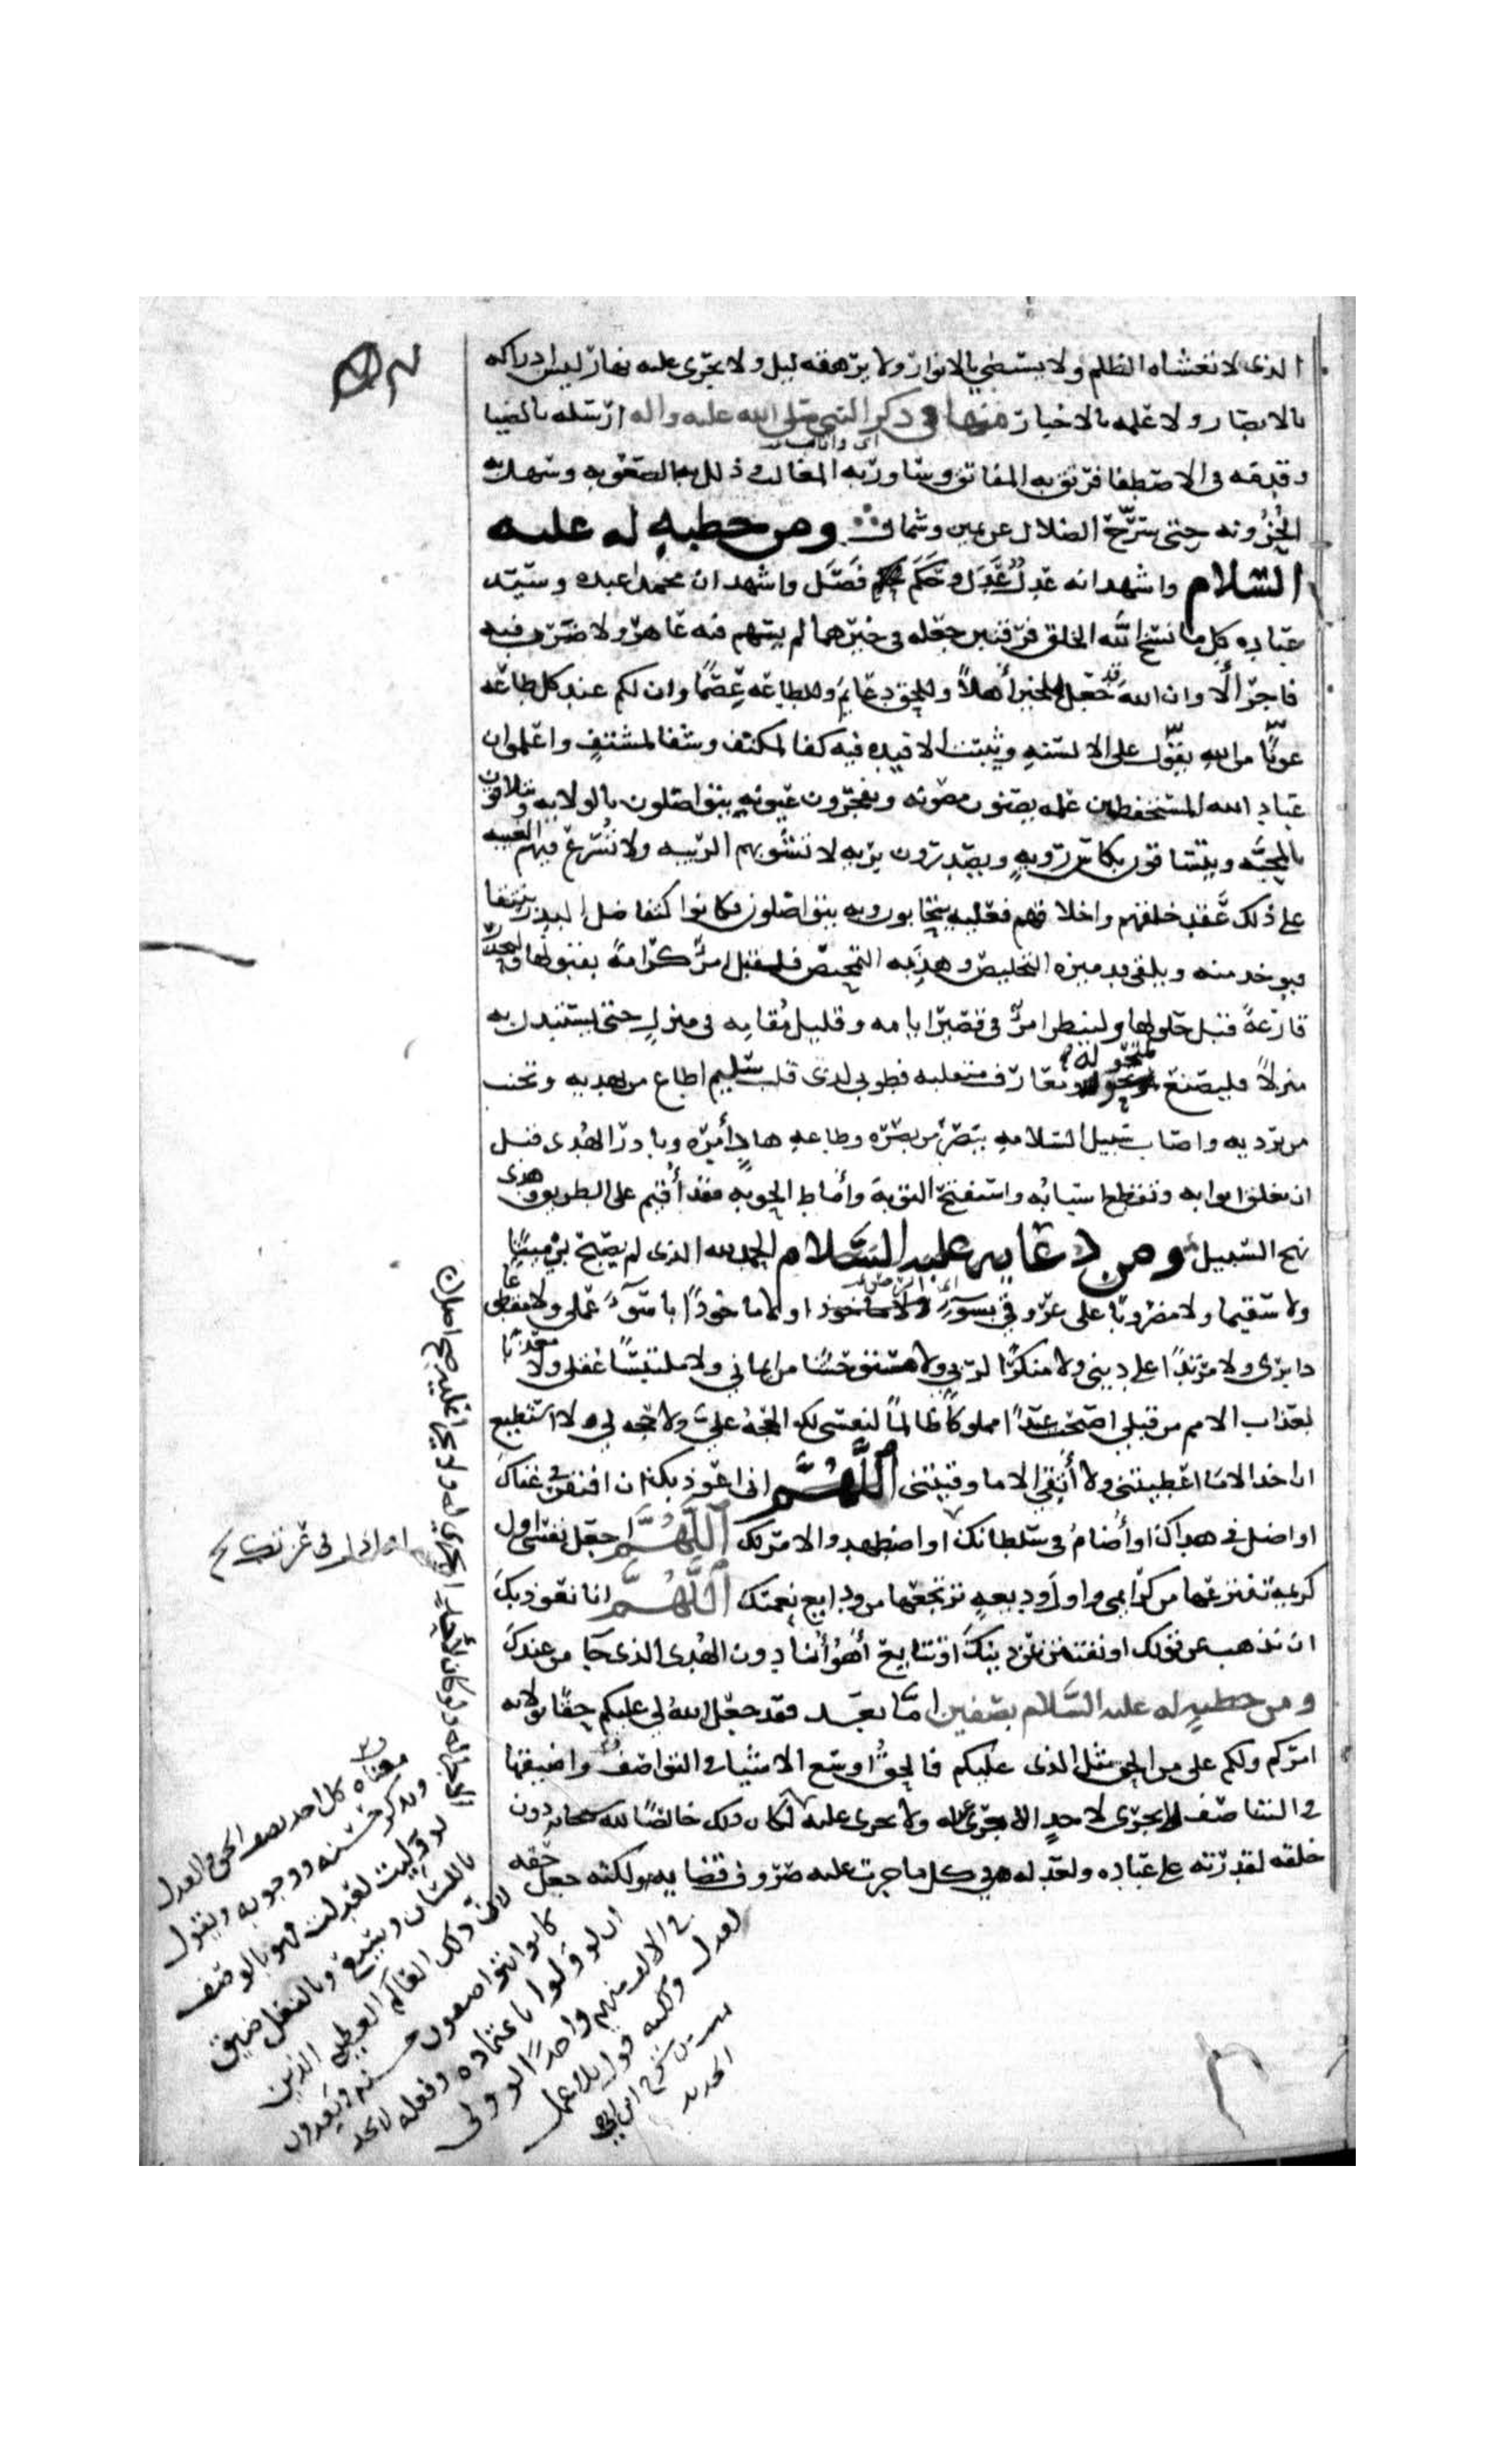 الذى لا تغشاه الظلم ولا يستضي بالانوار ولا يرهقه ليل ولا يجرى عليه نهار ليس ادراكه
بالابصار ولا علمه بالاخبار منها فى ذكر النبى صلى الله عليه واله ارسله بالضيا
وقدمه فى الاصطفا فرتق به المفاتق وساور به المغالب وذلل به الصعوبه وسهل به
الحُزُونه حتى سرّح الضلال عن يمين وشمال ومن خطبةٍ له عليه
السّلام واشهد انه عدلٌ عَدَل وحَكَم فَصَل واشهد ان محمدا عبده وسيد
عباده كلما نسخ الله الخلق فرقتين جعله فى خيرهما لم يسهم فيه عاهر ولا ضرب فيه
فاجر ألا وان الله قد جعل للخير أهلاً وللحق دعايم وللطاعه عِصَمًا وان لكم عند كل طاعه
عونًا من الله يقول على الالسنه ويثبت الافيده فيه كفا لمكتف وشفا لمشتفٍ واعلموا ان
عباد الله المستحفظين علمه يصونون مصونه ويفجرون عيونه يتواصلون بالولايه ويتلاقون
بالمحبّه ويتساقون بكاس رويهٍ ويصدرون بريه لا تشوبهم الريبه ولا تُسرع فيهم الغيبه
على ذلك عَقد خلقهم واخلاقهم فعليه يتحابون وبه يتواصلون فكانوا كتفاضل البذر ينتقا
فيوخذ منه ويلقى قد ميزه التخليص وهذبه التمحيص فليقبل امرُؤ كرامةً بقبولها وليحذر
قارعةً قبل حلولها ولينظر امرُؤ فى قصير ايامه وقليل مُقامه فى منزلٍ حتى يستبدل به
منزلاً فليصنع لمتحوله ومعارف منتقلبه فطوبى لذى قلب سليم اطاع من يهديه وتجنب
من يرديه واصاب سبيل السلامه ببَصَر من بصّره وطاعه هادٍ أمره وبادر الهُدى قبل
ان تغلق ابوابه وتقطع اسبابُه واستفتح التوبهَ وأماط الحوبه فقد أُقيم على الطريق وهدى
نهج السّبيل ومن دعايه عليه السّلام الحمد لله الذى لم يصبح بى ميتًا
ولا سقيما ولا مضروبًا على عروقى بسوءٍ ولا ماخوذًا باسوءِ عملى ولا مقطوعا
دابرى ولا مرتدًا على دينى ولا منكرًا لربى ولا مستوحشًا من ايمانى ولا ملتبسًا عقلى ولا معذبًا
بعذاب الامم من قبلى اصبحت عبدًا مملوكًا ظالمًا لنفسى لك الحجهُ علىّ ولا حجه لى ولا استطيع
ان اخذ الا ما اعطيتنى ولا أتقى الا ما وقيتنى اللّهُمَّ انى اعوذ بك ان افتقر فى غناك
او اضل فى هداك او أُضام فى سلطانك او اضطهد والامر لك اللّهُمَّ اجعل نفسى اول
كريمة تنتزعها من كرايمى واول وديعهٍ ترتجعها من ودايع نعمتك اللّهُمَّ انا نعوذ بك
ان نذهب عن قولك او نفتتن عن دينك او تتايع أهواؤنا دون الهُدى الذى جا من عندك
ومن خطبةٍ له عليه السّلام بصفين امّا بعد فقد جعل الله لى عليكم حقا بولايه
امركم ولكم على من الحق مثل الذى عليكم فالحقُّ اوسع الاشيا فى التواصف واضيقها
فى التناصف لا يجرى لاحدٍ الا جرى عليه ولا يجرى عليه لكان ذلك خالصًا لله سبحانه دون
خلقه لقدرته على عباده ولعدله فى كل ما جرت عليه صروف قضايه ولكنه جعل حقه
معناه كل احد يصف الحق والعدل
ويذكر حسنه ووجوبه ويقول
لو وليت لعدلت فهو بالوصف
باللسان وسيع وبالفعل ضيق
لان ذلك العالم العظيم الذين
كانوا يتواصفون حسنه ويعدون
ان لو ولوا باعتماده وفعله لا تجد
فى الالف منهم واحدًا لو ولى
لعدل ولكنه قول بلا عمل
من شرح ابن ابى
الحديد